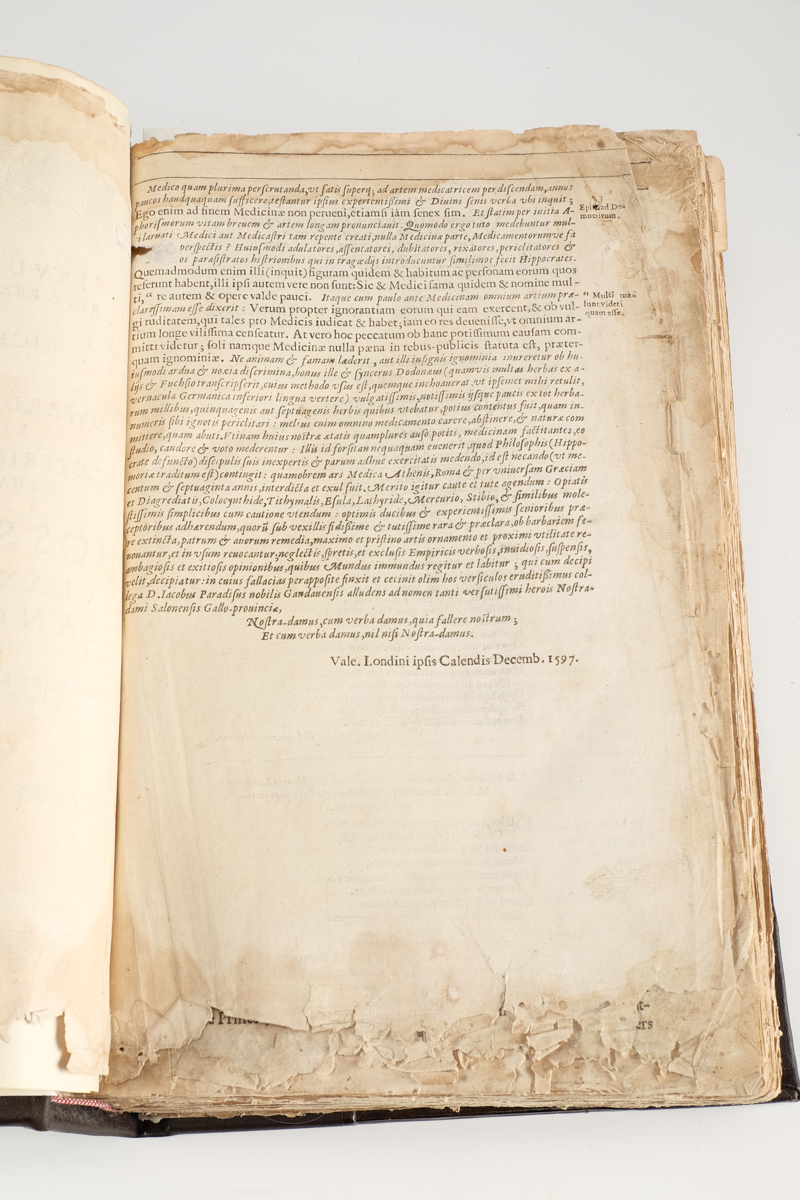 Medico quam plurima perſcrutanda, vt ſatis ſuperq; ad artem medicatricem perdiſcendam, annos
paucos haudquaquam ſufficere, teſtantur ipſius experientiſſimi & Diuini ſenis verba vbi inquit;
Ego enim ad finem Medicinæ non perueni, etiamſi iàm ſenex ſim. Et ſtatim per initia A-
phoriſmorum vitam breuem & artem longam pronunciauit. Quomodo ergo tuto medebuntur mul-
ti laruati Medici aut Medicaſtri tam repente creati, nulla Medicinæ parte, Medicamentorumve
perſpectis? Huiuſmodi adulatores, aſſentatores, dubitatores, rixatores, periclitatores &
os paraſiſtratos hiſtrionibus qui in tragœdijs introducuntur ſimilimos fecit Hippocrates.
Quemadmodum enim illi (inquit) figuram quidem & habitum ac perſonam eorum quos
referunt habent, illi ipſi autem vere non ſunt: Sic & Medici fama quidem & nomine mul-
ti, “ re autem & opere valde pauci. Itaque cum paulo ante Medicinam omnium artium præ-
clariſſimam eſſe dixerit: Verum propter ignorantiam eorum qui eam exercent, & ob vul-
gi ruditatem, qui tales pro Medicis iudicat & habet; iam eo res deueniſſe, vt omnium ar-
tium longe viliſſima cenſeatur. At vero hoc peccatum ob hanc potiſſimum cauſam com-
mitti videtur; ſoli namque Medicinæ nulla pæna in rebus-publicis ſtatuta eſt, præter-
quam ignominiæ. Ne animam & famam læderit, aut illi inſignis ignominia inureretur ob hu-
iuſmodi ardua & noxia diſcrimina, bonus ille & ſyncerus Dodonæus (quamvis multas herbas ex a-
lijs & Fuchſio tranſcripſerit, cuius methodo vſus eſt, quemque inchoauerat, vt ipſemet mihi retulit,
vernacula Germanica inferiori lingua vertere) vulgatiſſimis, notiſſimis ijſque paucis ex tot herba-
rum millibus, quinquagenis aut ſeptuagenis herbis quibus vtebatur, potius contentus fuit, quam in-
numeris ſibi ignotis periclitari: melius enim omnino medicamento carere, abſtinere, & naturæ com
mittere, quam abuti. Vtinam huius noſtræ ætatis quamplures auſo potiti, medicinam factitantes, eo
ſtudio, candore & voto mederentur: Illis id forſitan nequaquam euenerit, quod Philoſophis (Hippo-
crate defuncto) diſcipulis ſuis inexpertis & parum adhuc exercitatis medendo, id eſt necando (vt me-
moriæ traditum eſt) contingit: quamobrem ars Medica Athenis, Roma & per vniuerſam Græciam
centum & ſeptuaginta annis, interdicta et exul fuit. Merito igitur caute et tute agendum: Opiatis
et Diagrediatis, Colocynthide, Tithymalis, Eſula, Lathyride, Mercurio, Stibio, & ſimilibus mole-
ſtiſſimis ſimplicibus cum cautione vtendum: optimis ducibus & experientiſſimis ſenioribus præ-
ceptoribus adhærendum, quorū ſub vexillis fidiſſime & tutiſſime rara & præclara, ob barbariem fe-
re extincta, patrum & auorum remedia, maximo et priſtino artis ornamento et proximi vtilitate re-
nouantur, et in vſum reuocantur; neglectis, ſpretis, et excluſis Empiricis verboſis, inuidioſis, ſuſpenſis,
ambagioſis et exitioſis opinionibus, quibus Mundus immundus regitur et labitur; qui cum decipi
velit, decipiatur: in cuius fallacias perappoſite finxit et cecinit olim hos verſiculos eruditiſſimus col-
lega D. Iacobus Paradiſus nobilis Gandauenſis alludens ad nomen tanti verſutiſſimi herois Noſtra-
dami Salonenſis Gallo-prouinciæ,
Noſtra-damus, cum verba damus, quia fallere noſtrum;
Et cum verba damus, nil niſi Noſtra-damus.
Vale. Londini ipſis Calendis Decemb. 1597.
mocritum.
“ Multi mæ-
lunt videri
quam eſſe.